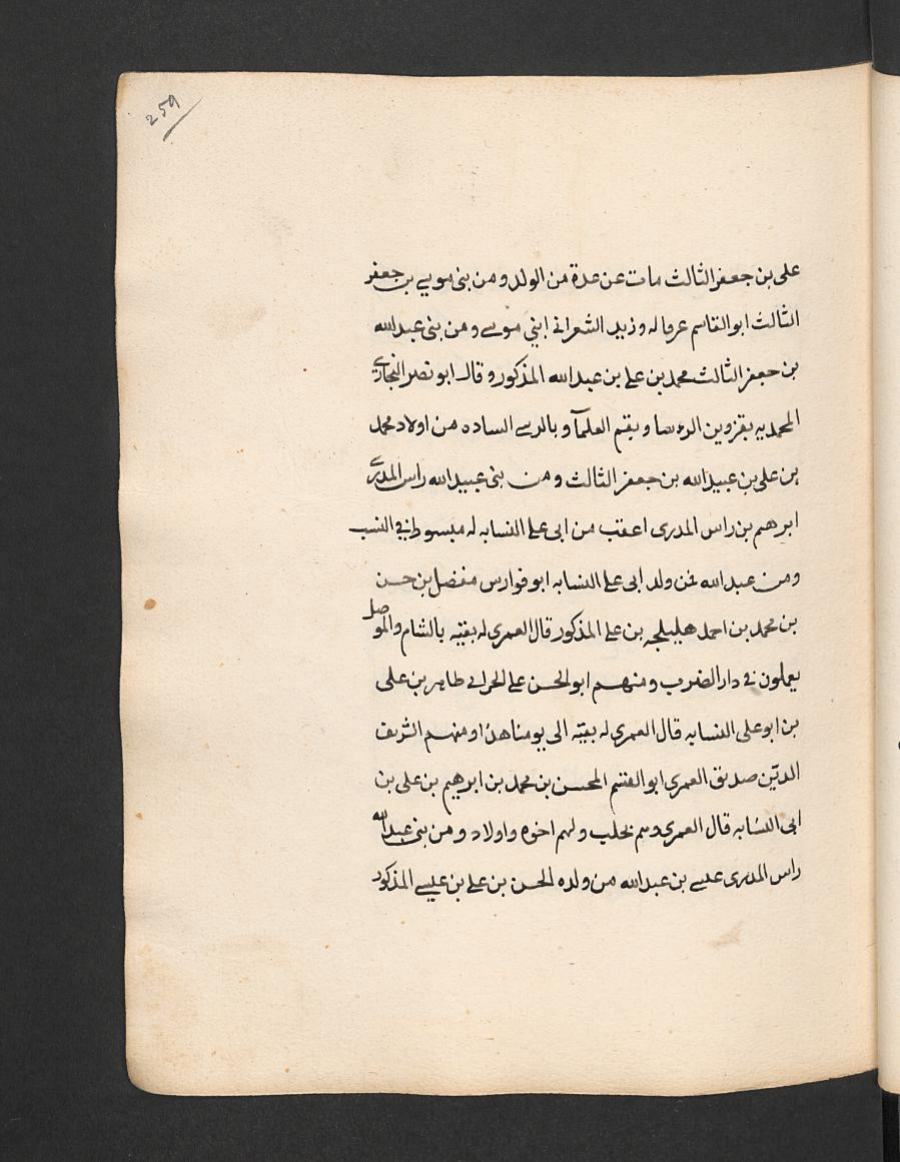 259
على بن جعفر الثالث مات عن عدة من الولد ومن بنى موسى بن جعفر
الثالث ابو القاسم عرفا له وزيد الشعرانى ابنى موسى ومن بنى عبدالله
بن جعفر الثالث محمد بن على بن عبد الله المذكور وقال ابو نصر النجارى
المحمديه بقزوين الروسا وبقم العلمآ وبالرى الساده من اولاد محمد
بن على بن عبيدالله بن جعفر الثالث ومن بنى عبيدالله راس المدرى
ابرهيم بن راس المدرى اعقب من ابى على النسابه له مبسوط فى النسب
ومن عبدالله فمن ولد ابى على النسابه ابو فوارس مفضل بن حسن
بن محمد بن احمد هليلجه بن على المذكور قال العمرى له بقيه بالشام والموصل
يعملون فى دار الضرب ومنهم ابو الحسن على الحرانى طاهر بن على
بن ابو على النسابه قال العمرى له بقيه الى يومنا هذا ومنهم الشريف
الديّن صديق العمرى ابو الفتح المحسن بن محمد بن ابرهيم بن على بن
ابى النسابه قال العمرى وهم بحلب ولهم اخوه واولاد ومن بنى عبدالله
راس المدرى عيسى بن عبدالله من ولده الحسن بن على بن عيسى المذكور